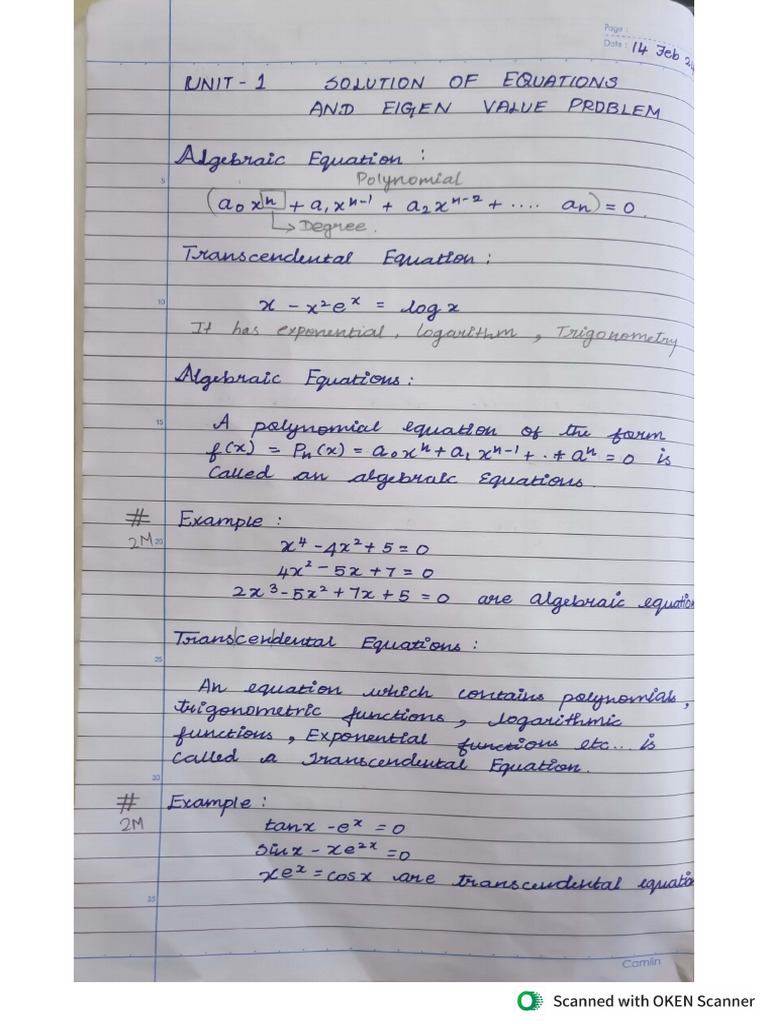 Page :
Date : 14 Feb 24
UNIT - 1 SOLUTION OF EQUATIONS
AND EIGEN VALUE PROBLEM
Algebraic Equation :
Polynomial
5
(a₀xⁿ + a₁xⁿ⁻¹ + a₂xⁿ⁻² + .... aₙ) = 0.
↳ Degree.
Transcendental Equation :
10
x - x²eˣ = log x
It has exponential, logarithm, Trigonometry
Algebraic Equations :
15
A polynomial equation of the form
f(x) = Pₙ(x) = a₀xⁿ + a₁xⁿ⁻¹ + . + aⁿ = 0 is
called an algebraic Equations.
# Example :
2M 20
x⁴ - 4x² + 5 = 0
4x² - 5x + 7 = 0
2x³ - 5x² + 7x + 5 = 0 are algebraic equation
Transcendental Equations :
25
An equation which contains polynomials,
trigonometric functions, logarithmic
functions, Exponential functions etc... is
called a Transcendental Equation.
30
# Example :
2M
tanx - eˣ = 0
sinx - xe²ˣ = 0
xeˣ = cosx are transcendental equatio
35
Camlin
Scanned with OKEN Scanner